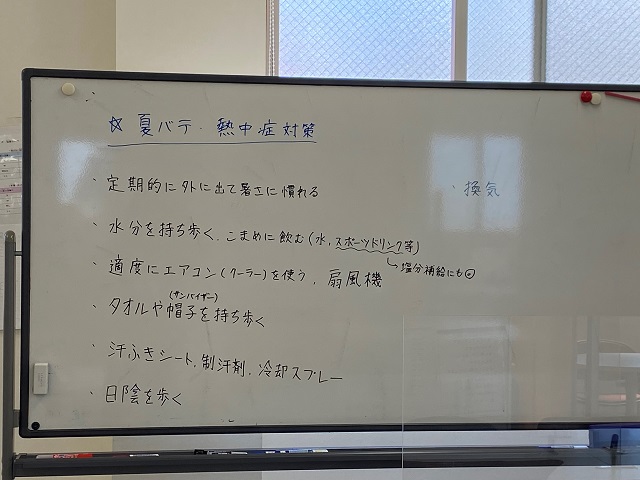 ☆ 夏バテ・熱中症対策
・定期的に外に出て暑さに慣れる
・水分を持ち歩く、こまめに飲む(水、スポーツドリンク等)
↳塩分補給にも◎
・適度にエアコン(クーラー)を使う、扇風機
(サンバイザー)
・タオルや帽子を持ち歩く
・汗ふきシート、制汗剤、冷却スプレー
・日陰を歩く
・換気